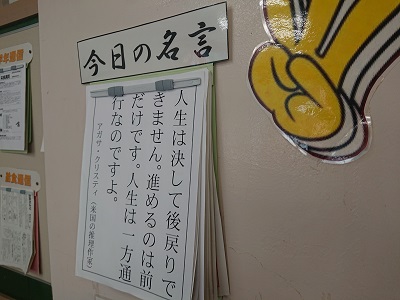 今日の名言
人生は決して後戻りで
きません。進めるのは前
だけです。人生は一方通
行なのですよ。
アガサ・クリスティ（米国の推理作家）
給食時間